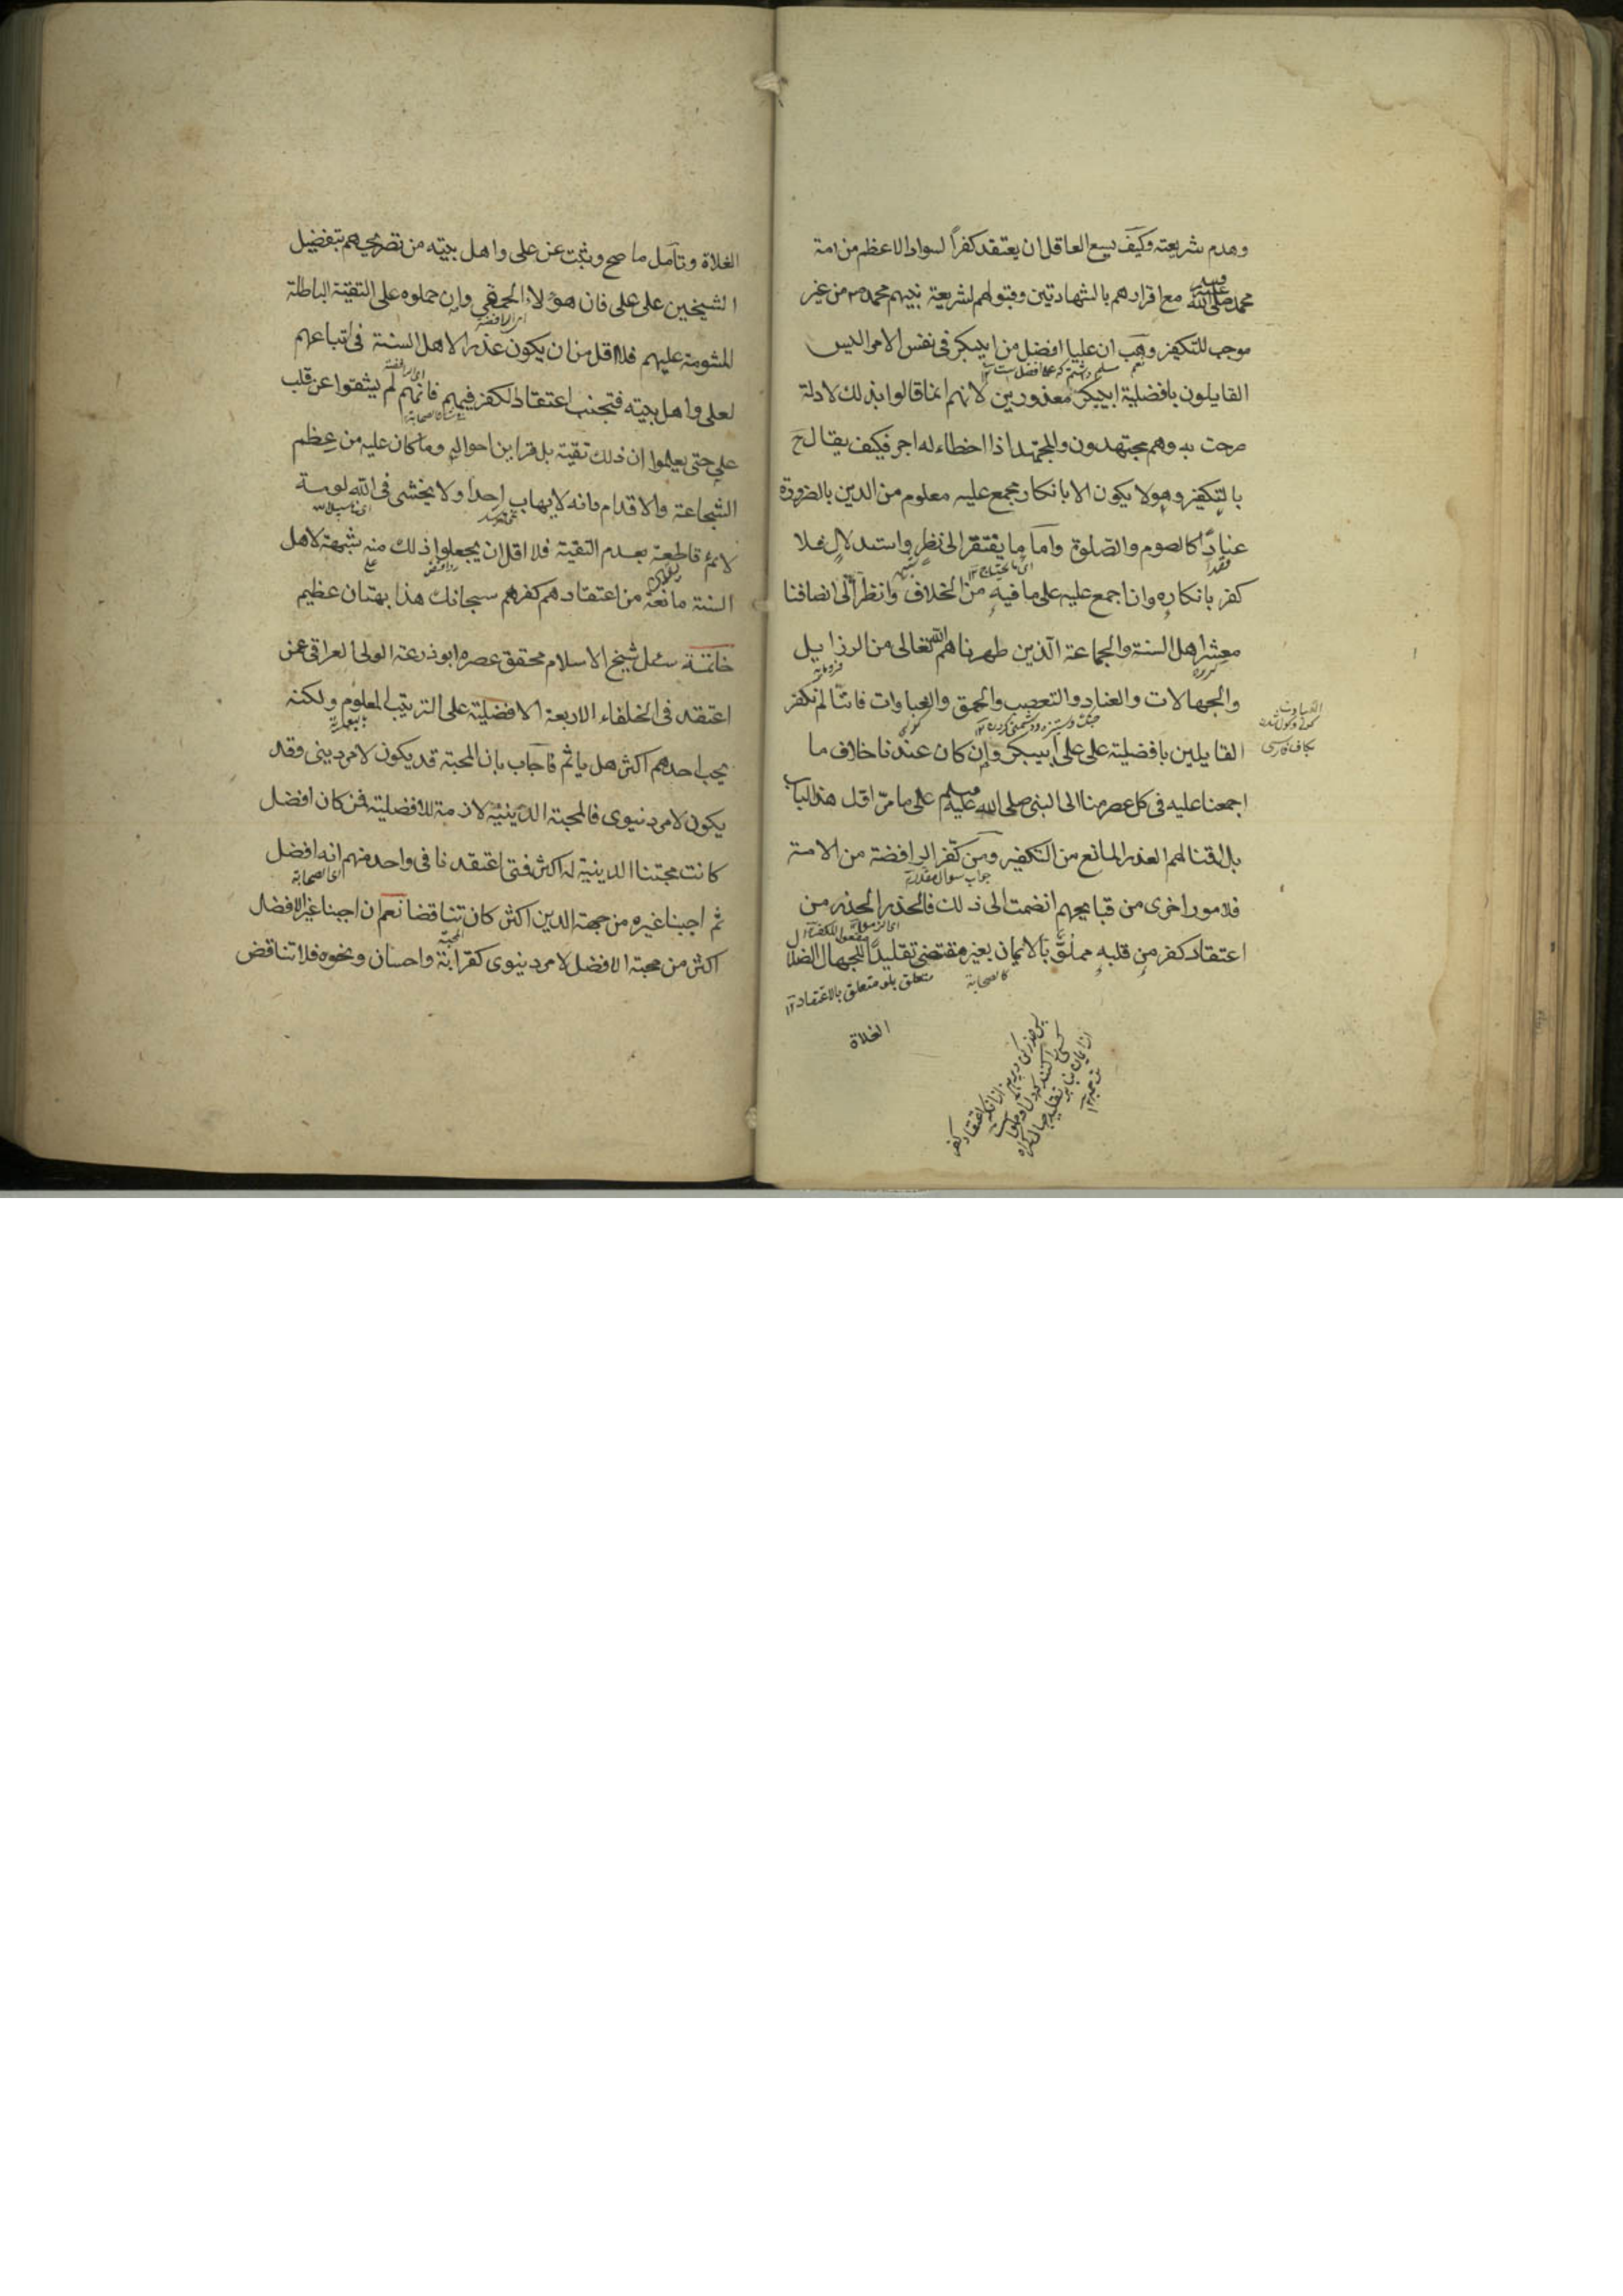 وهدم شريعته وكيف يسع العاقل ان يعتقد كفراً لسواد الاعظم من امة
محمد صلى الله عليه وسلم مع اقرارهم بالشهادتين وقبولهم لشريعة نبيهم محمد من غير
موجب للتكفير وهب ان عليا افضل من ابي بكر في نفس الامر اليس
القايلون بافضلية ابي بكر معذورين لانهم انما قالوا بذلك لادلة
صرحت به وهم مجتهدون والمجتهد اذا اخطاء له اجر فكيف يقال ح
بالتكفير وهو لا يكون الا بانكار مجمع عليه معلوم من الدين بالضرورة
عنادًا كالصوم والصلوة واما ما يفتقر الى نظر واستدلال فلا
كفر بانكاره وان اجمع عليه على ما فيه من الخلاف وانظر الى انصافنا
معشر اهل السنة والجماعة الذين طهرناهم الله تعالى من الرذايل
والجهالات والعناد والتعصب والحمق والغباوات فاننا لم نكفر
القايلين بافضلية على على ابي بكر وإن كان عندنا خلاف ما
اجمعنا عليه في كل عصر منا الى النبي صلى الله عليه وسلم على ما مر اول هذا الباب
بل اقنا لهم العذر المانع من التكفير ومن كفر الرافضة من الامة
فلامور اخرى من قبايحهم انضمت الى ذلك فالحذر الحذر من
اعتقاد كفر من قلبه مملوّ بالايمان بغير مقتضى تقليدًا للجهال الضلال
كالصحابة
متعلق بلو متعلق بالاعتقاد ١٢
الغلاة
الغلاة وتأمل ما صح وثبت عن على واهل بيته من تصريحهم بتفضيل
الشيخين على على فان هؤلاء الحمقى وإن حملوه على التقية الباطلة
المشومة عليهم فلا اقل من ان يكون عذرا لاهل السنة في اتباعهم
لعلى واهل بيته فتجنب اعتقاد الكفر فيهم فانهم لم يشقوا عن قلب
على حتى يعلموا ان ذلك تقية بل قراين احواله وما كان عليه من عظم
الشجاعة والاقدام وانه لا يهاب احدا ولا يخشى في الله لومة
لائم قاطعة بعدم التقية فلا اقل ان يجعلوا ذلك منه شبهة لاهل
السنة مانعة من اعتقادهم كفرهم سبحانك هذا بهتان عظيم
خاتمة سئل شيخ الاسلام محقق عصره ابو ذرعة الولي العراقى عمن
اعتقد في الخلفاء الاربعة الافضلية على الترتيب المعلوم ولكنه
يحب احدهم اكثر هل ياثم فاجاب بان المحبة قد يكون لامر ديني وقد
يكون لامر دنيوى فالمحبة الدينية لازمة للافضلية فمن كان افضل
كانت محبتنا الدينية له اكثر فمتى اعتقدنا في واحد منهم انه افضل
ثم احببنا غيره من جهة الدين اكثر كان تناقضا نعم ان احببنا غير الافضل
اكثر من محبة الافضل لامر دنيوى كقرابة واحسان ونحوه فلا تناقض